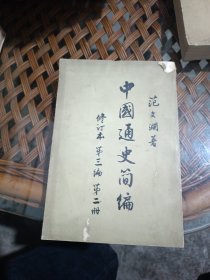 范文澜著
中國通史简编
修订本第三编第二册